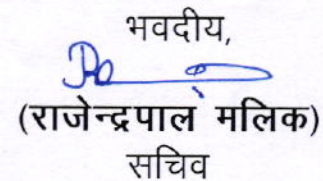 भवदीय,
(राजेन्द्रपाल मलिक)
सचिव